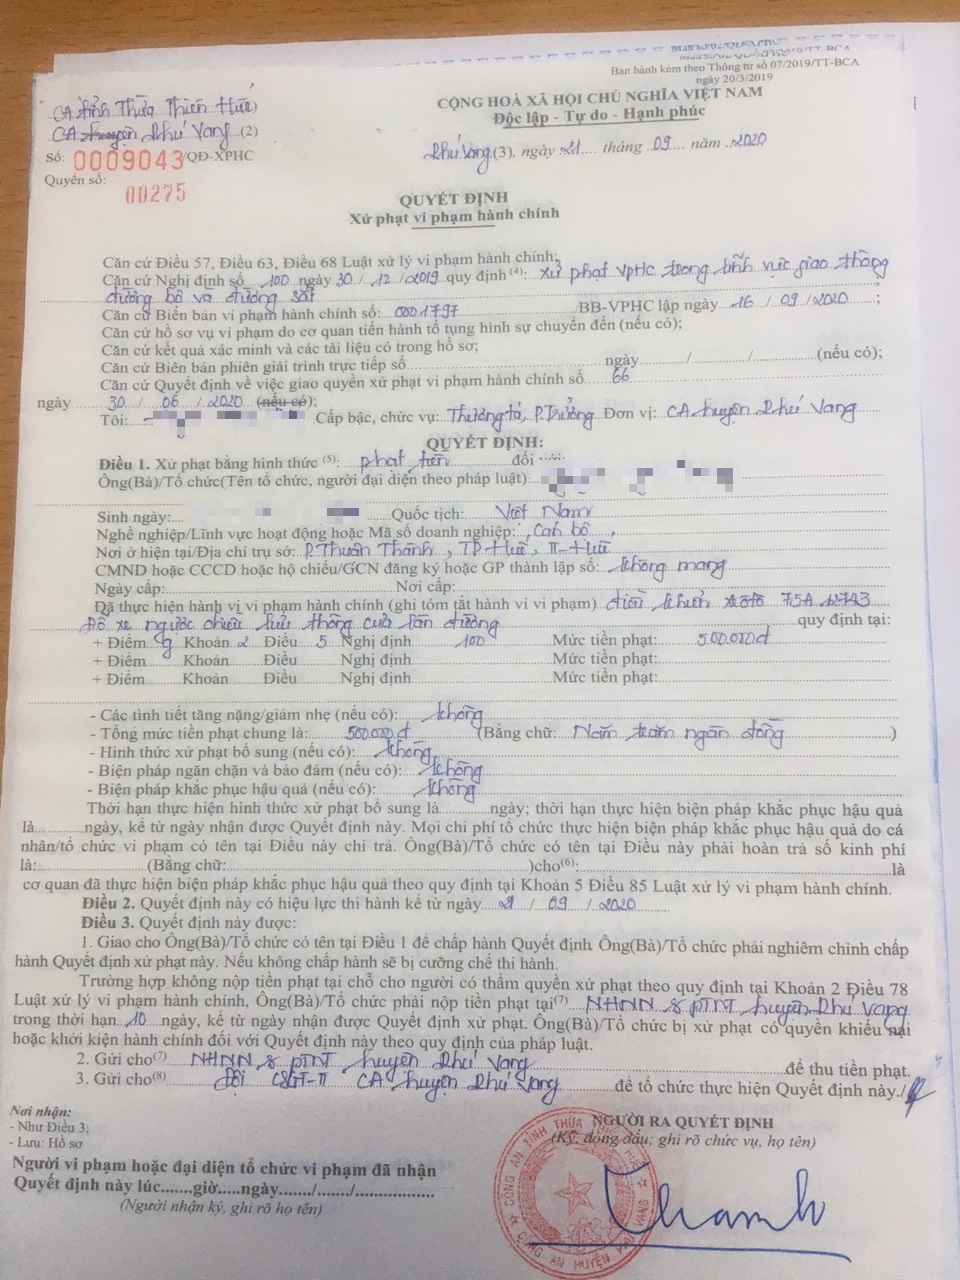 Mẫu số 02/QĐ-XPHC
Ban hành kèm theo Thông tư số 07/2019/TT-BCA
ngày 20/3/2019
CỘNG HOÀ XÃ HỘI CHỦ NGHĨA VIỆT NAM
Độc lập - Tự do - Hạnh phúc
CA tỉnh Thừa Thiên Huế
CA huyện Phú Vang (2)
Số: 0009043/QĐ-XPHC
Quyển số: 00275
Phú Vang (3), ngày 21 tháng 09 năm 2020
QUYẾT ĐỊNH
Xử phạt vi phạm hành chính
Căn cứ Điều 57, Điều 63, Điều 68 Luật xử lý vi phạm hành chính;
Căn cứ Nghị định số 100 ngày 30/12/2019 quy định (4): xử phạt VPHC trong lĩnh vực giao thông
đường bộ và đường sắt
Căn cứ Biên bản vi phạm hành chính số: 0001797 /BB-VPHC lập ngày 16/09/2020;
Căn cứ hồ sơ vụ vi phạm do cơ quan tiến hành tố tụng hình sự chuyển đến (nếu có);
Căn cứ kết quả xác minh và các tài liệu có trong hồ sơ;
Căn cứ Biên bản phiên giải trình trực tiếp số......ngày....../....../......(nếu có);
Căn cứ Quyết định về việc giao quyền xử phạt vi phạm hành chính số 66
ngày 30/06/2020 (nếu có);
Tôi: Cấp bậc, chức vụ: Thượng tá, P.Trưởng Đơn vị: CA huyện Phú Vang
QUYẾT ĐỊNH:
Điều 1. Xử phạt bằng hình thức (5): phạt tiền đối
Ông(Bà)/Tổ chức(Tên tổ chức, người đại diện theo pháp luật):
Sinh ngày: Quốc tịch: Việt Nam
Nghề nghiệp/Lĩnh vực hoạt động hoặc Mã số doanh nghiệp: Cán bộ
Nơi ở hiện tại/Địa chỉ trụ sở: P. Thuận Thành, TP Huế, TT-Huế
CMND hoặc CCCD hoặc hộ chiếu/GCN đăng ký hoặc GP thành lập số: không mang
Ngày cấp: Nơi cấp:
Đã thực hiện hành vi vi phạm hành chính (ghi tóm tắt hành vi vi phạm) điều khiển xe ôtô 75A 12743
Đỗ xe ngược chiều lưu thông của làn đường quy định tại:
+ Điểm g Khoản 2 Điều 5 Nghị định 100 Mức tiền phạt: 500.000đ
+ Điểm Khoản Điều Nghị định Mức tiền phạt:
+ Điểm Khoản Điều Nghị định Mức tiền phạt:
- Các tình tiết tăng nặng/giảm nhẹ (nếu có): không
- Tổng mức tiền phạt chung là: 500.000đ (Bằng chữ: Năm trăm ngàn đồng)
- Hình thức xử phạt bổ sung (nếu có): không
- Biện pháp ngăn chặn và bảo đảm (nếu có): không
- Biện pháp khắc phục hậu quả (nếu có): không
Thời hạn thực hiện hình thức xử phạt bổ sung là......ngày; thời hạn thực hiện biện pháp khắc phục hậu quả
là......ngày, kể từ ngày nhận được Quyết định này. Mọi chi phí tổ chức thực hiện biện pháp khắc phục hậu quả do cá
nhân/tổ chức vi phạm có tên tại Điều này chi trả. Ông(Bà)/Tổ chức có tên tại Điều này phải hoàn trả số kinh phí
là:......(Bằng chữ:......)cho(6):......là
cơ quan đã thực hiện biện pháp khắc phục hậu quả theo quy định tại Khoản 5 Điều 85 Luật xử lý vi phạm hành chính.
Điều 2. Quyết định này có hiệu lực thi hành kể từ ngày 21/09/2020
Điều 3. Quyết định này được:
1. Giao cho Ông(Bà)/Tổ chức có tên tại Điều 1 để chấp hành Quyết định Ông(Bà)/Tổ chức phải nghiêm chỉnh chấp
hành Quyết định xử phạt này. Nếu không chấp hành sẽ bị cưỡng chế thi hành.
Trường hợp không nộp tiền phạt tại chỗ cho người có thẩm quyền xử phạt theo quy định tại Khoản 2 Điều 78
Luật xử lý vi phạm hành chính, Ông(Bà)/Tổ chức phải nộp tiền phạt tại(7) NHNN & PTNT huyện Phú Vang
trong thời hạn 10 ngày, kể từ ngày nhận được Quyết định xử phạt. Ông(Bà)/Tổ chức bị xử phạt có quyền khiếu nại
hoặc khởi kiện hành chính đối với Quyết định này theo quy định của pháp luật.
2. Gửi cho(7) NHNN & PTNT huyện Phú Vang để thu tiền phạt.
3. Gửi cho(8) Đội CSGT-TT CA huyện Phú Vang để tổ chức thực hiện Quyết định này./.
Nơi nhận:
- Như Điều 3;
- Lưu: Hồ sơ
NGƯỜI RA QUYẾT ĐỊNH
(Ký, đóng dấu; ghi rõ chức vụ, họ tên)
Người vi phạm hoặc đại diện tổ chức vi phạm đã nhận
Quyết định này lúc.......giờ.....ngày......./......./.................
(Người nhận ký, ghi rõ họ tên)
CÔNG AN TỈNH THỪA THIÊN HUẾ
CÔNG AN HUYỆN PHÚ VANG
Thanh